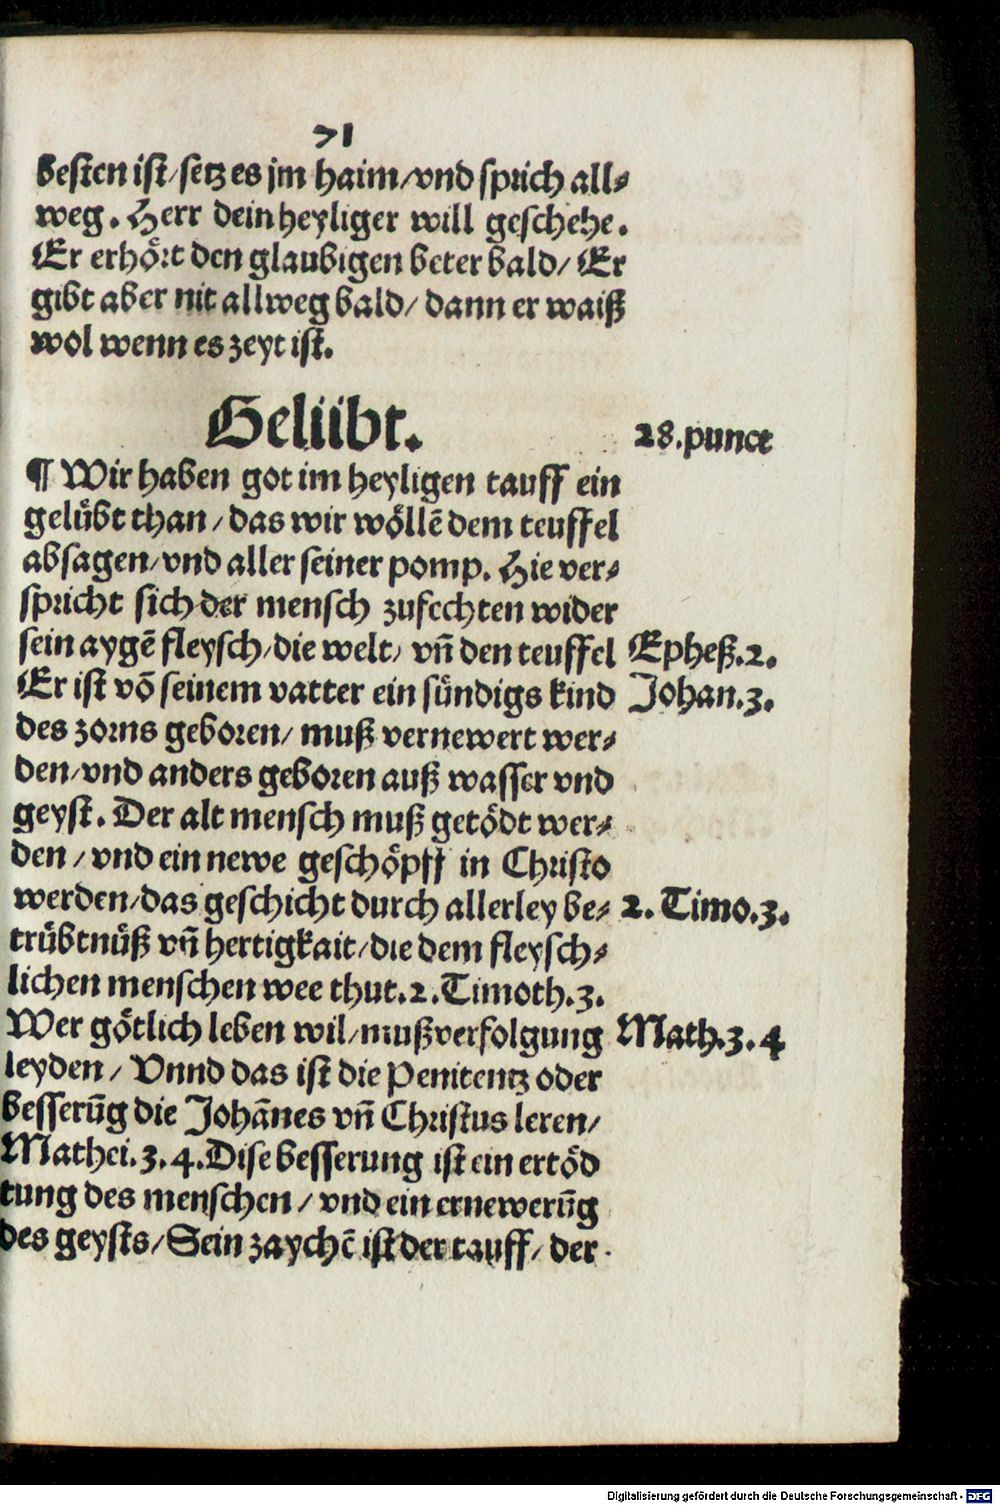 71
besten ist/setz es jm haim/vnd sprich all⸗
weg. Herr dein heyliger will geschehe.
Er erhört den glaubigen beter bald/ Er
gibt aber nit allweg bald/ dann er waiß
wol wenn es zeyt ist.
Gelübt.
28.punct
¶ Wir haben got im heyligen tauff ein
gelübt than/das wir wöllē dem teuffel
absagen/vnd aller seiner pomp. Hie ver⸗
spricht sich der mensch zufechten wider
sein aygē fleysch/die welt/ vñ den teuffel
Epheß.2.
Er ist vō seinem vatter ein sündigs kind
Johan.3.
des zorns geboren/ muß vernewert wer⸗
den/vnd anders geboren auß wasser vnd
geyst. Der alt mensch muß getödt wer⸗
den/vnd ein newe geschöpff in Christo
werden/das geschicht durch allerley be⸗
2. Timo.3.
trübtnüß vñ hertigkait/die dem fleysch⸗
lichen menschen wee thut.2.Timoth.3.
Wer götlich leben wil/muß verfolgung
Math.3.4
leyden/ Vnnd das ist die Penitentz oder
besserūg die Johānes vñ Christus leren/
Mathei.3.4.Dise besserung ist ein ertöd
tung des menschen/vnd ein ernewerūg
des geysts/Sein zaychē ist der tauff/ der
Digitalisierung gefördert durch die Deutsche Forschungsgemeinschaft - DFG